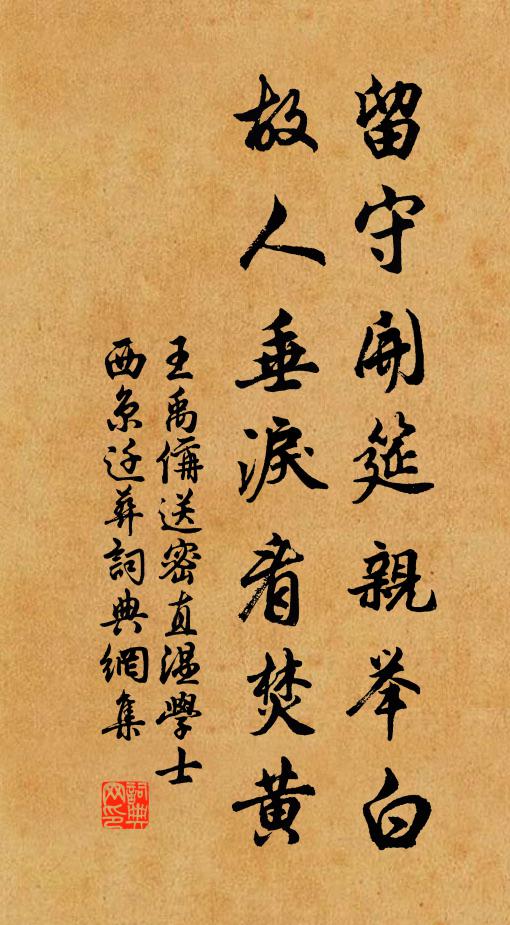 留守開筵親举白
故人垂淚看焚黄
王禹偁送密直温學士
西京迁葬詞典網集
詞典网印